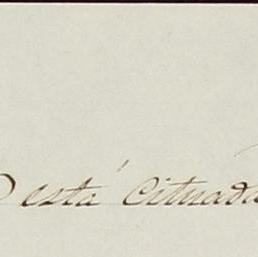 está Cituada